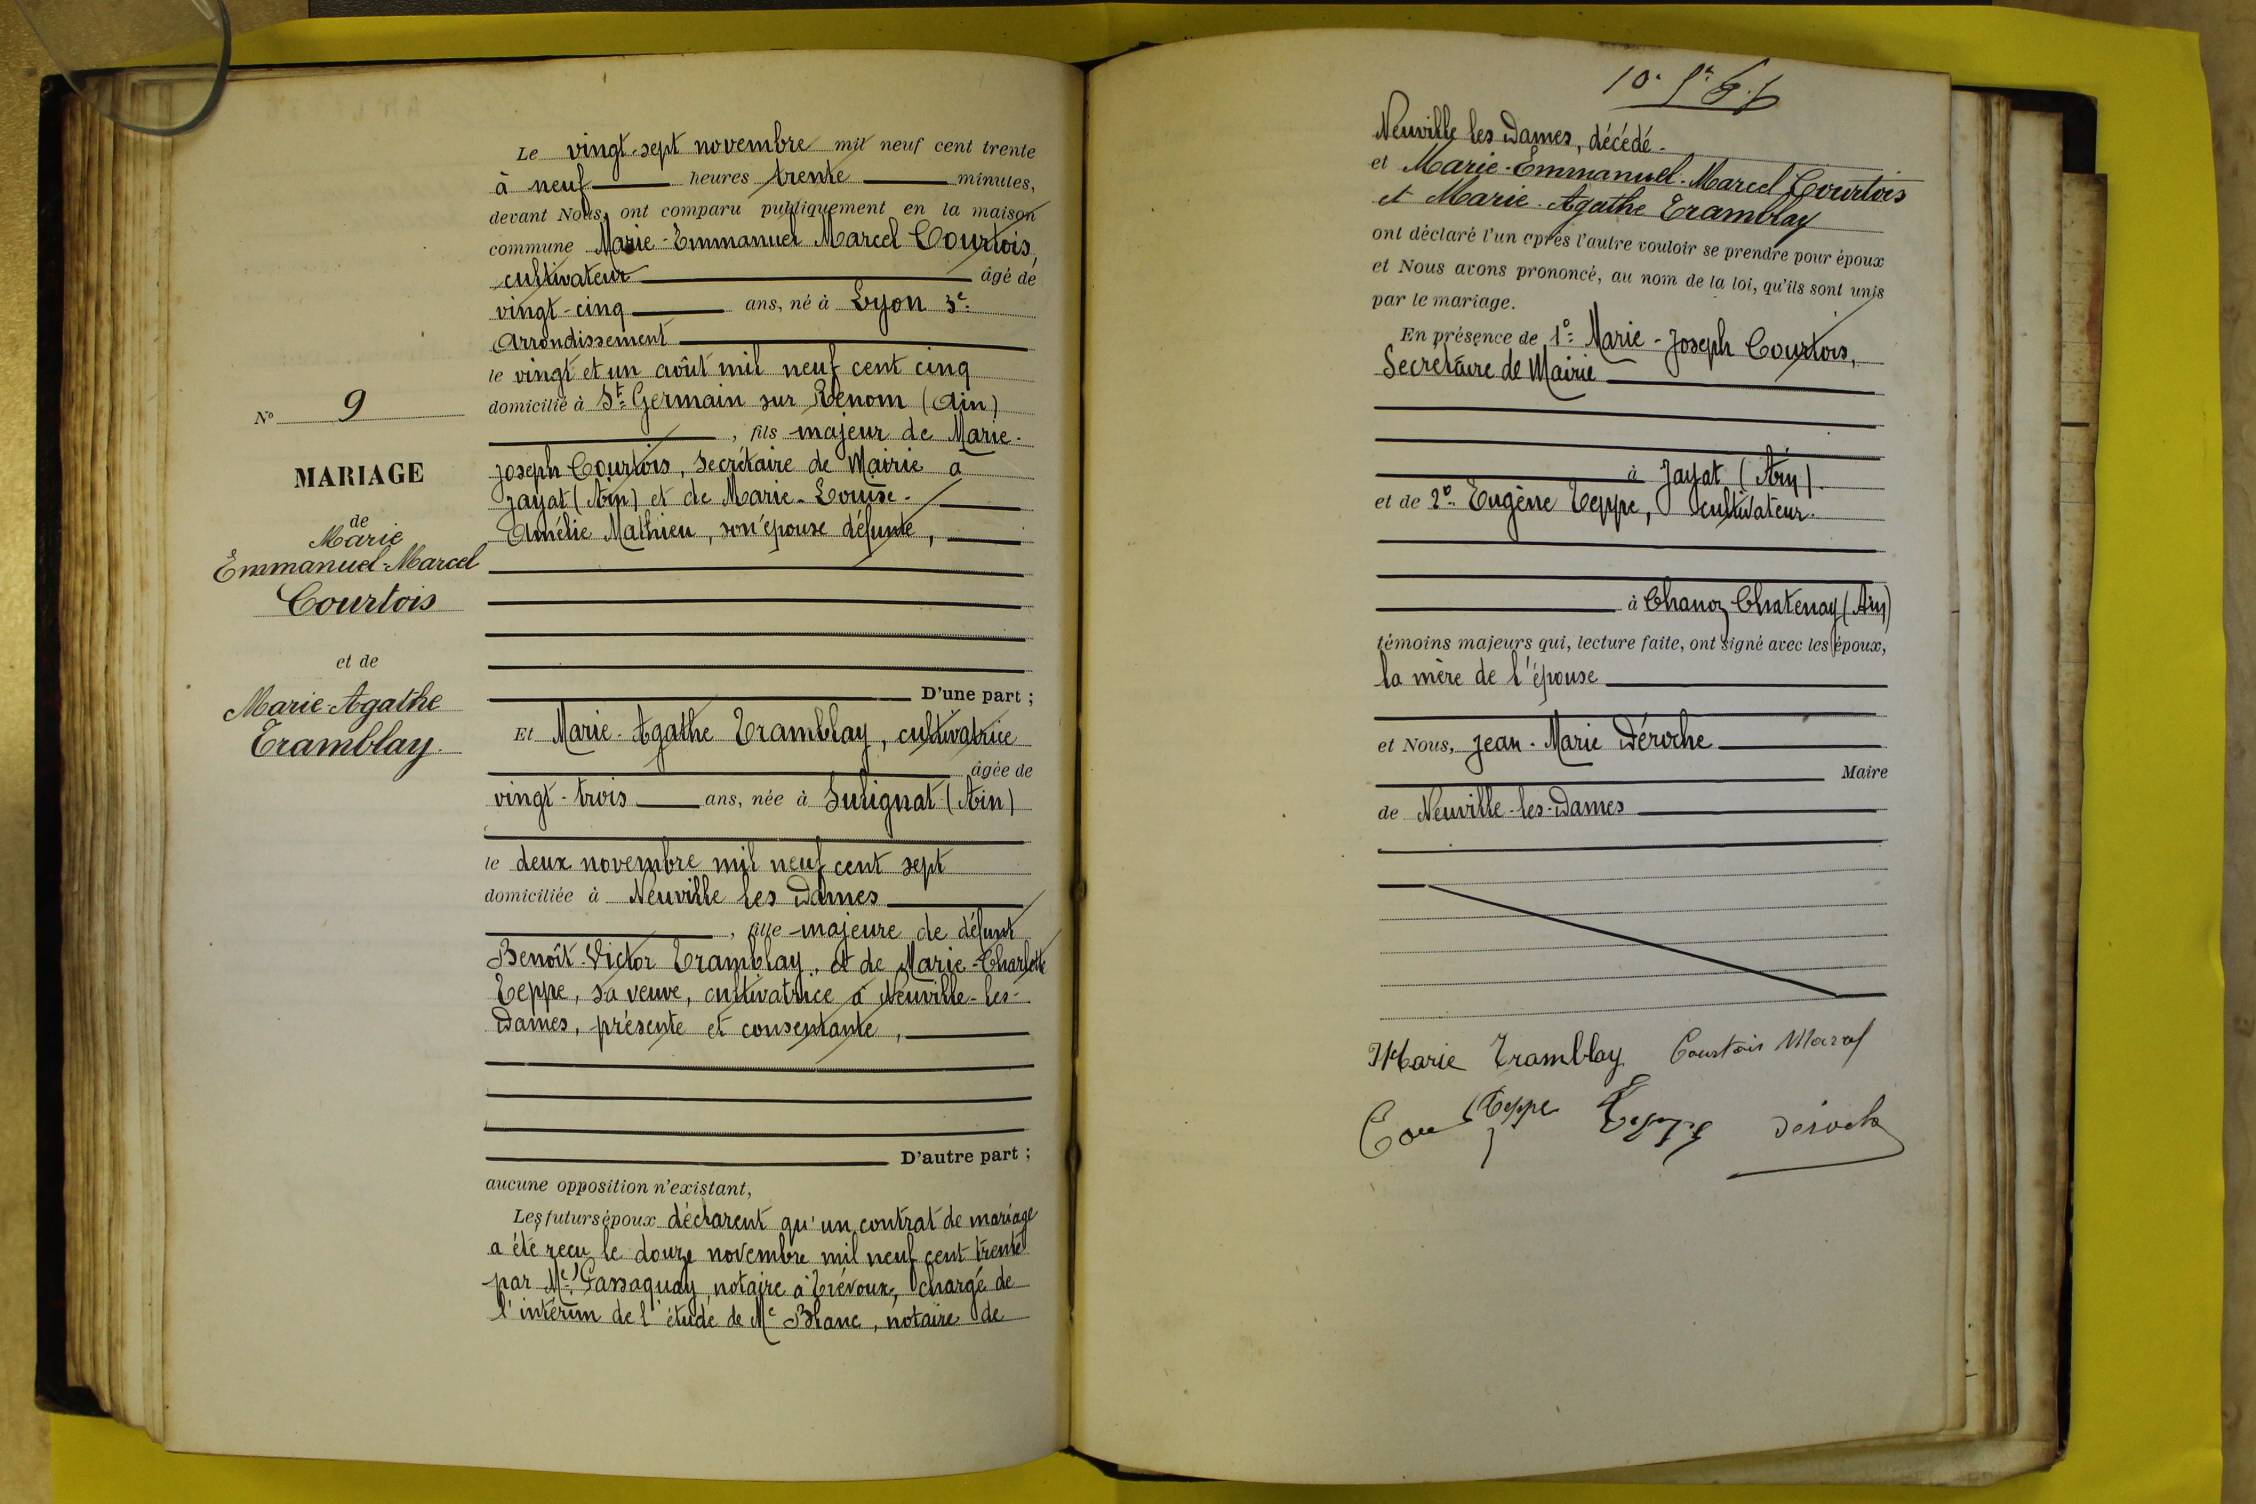 Le vingt-sept novembre mil neuf cent trente
à neuf heures trente minutes,
devant Nous, ont comparu publiquement en la maison
commune Marie-Emmanuel Marcel Courtois,
cultivateur âgé de
vingt-cinq ans, né à Lyon 3e
Arrondissement
le vingt et un août mil neuf cent cinq
domicilié à St Germain sur Renom (Ain)
, fils majeur de Marie-
Joseph Courtois, Secrétaire de Mairie à
Jayat (Ain) et de Marie-Louise-
Amélie Mathieu, son épouse défunte,
D'une part ;
Et Marie-Agathe Tramblay, cultivatrice
âgée de
vingt-trois ans, née à Sulignat (Ain)
le deux novembre mil neuf cent sept
domiciliée à Neuville les Dames
, fille majeure de défunt
Benoît-Victor Tramblay, et de Marie-Charlotte
Teppe, sa veuve, cultivatrice à Neuville-les-
Dames, présente et consentante,
D'autre part ;
aucune opposition n'existant,
Les futurs époux déclarent qu'un contrat de mariage
a été reçu le douze novembre mil neuf cent trente
par Me notaire à Trévoux, chargé de
l'intérim de l'étude de Me Blanc, notaire de
No 9
MARIAGE
de
Marie
Emmanuel-Marcel
Courtois
et de
Marie-Agathe
Tramblay.
Neuville les Dames, décédé.
et Marie-Emmanuel-Marcel Courtois
et Marie-Agathe Tramblay
ont déclaré l'un après l'autre vouloir se prendre pour époux
et Nous avons prononcé, au nom de la loi, qu'ils sont unis
par le mariage.
En présence de 1o Marie-Joseph Courtois,
Secrétaire de Mairie
à Jayat (Ain).
et de 2o Eugène Teppe, cultivateur.
à Chanoz Chatenay (Ain)
témoins majeurs qui, lecture faite, ont signé avec les époux,
la mère de l'épouse
et Nous, Jean-Marie Déroche
Maire
de Neuville-les-Dames
Marie Tramblay Courtois Marcel
Teppe Déroche